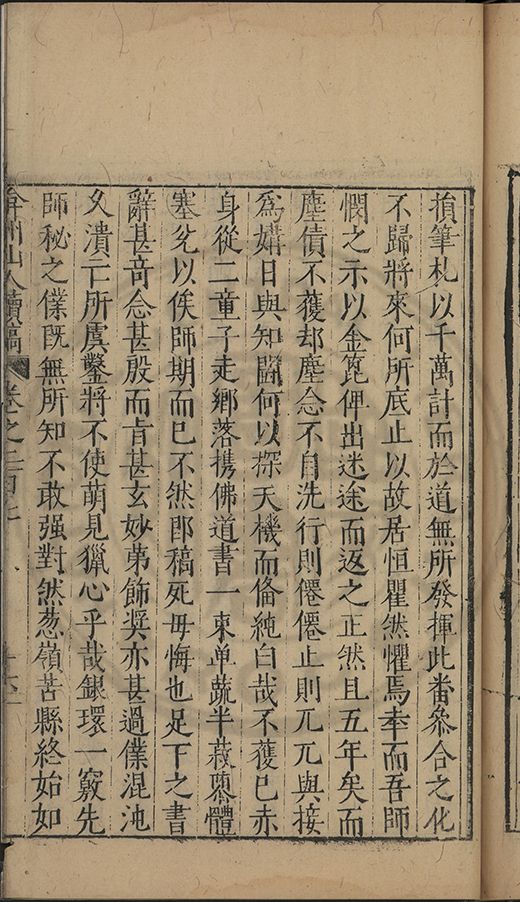 損筆札以千萬計而於道無所發揮此番叅合之化
不歸將來何所底止以故居恒瞿然懼焉幸而吾師
憫之示以金篦俾出迷途而返之正然且五年矣而
塵債不獲却塵念不自洗行則僊僊止則兀兀與接
爲媾日與知鬪何以探天機而僃純白哉不獲已赤
身從二童子走鄉落携佛道書一束单蔬半菽藜體
塞兊以俟師期而已不然卽稿死毋悔也足下之書
辭甚竒念甚殷而㫖甚玄妙苐飾奬亦甚過僕混沌
久潰亡所虞鑿將不使萌見獵心乎哉銀環一竅先
師秘之僕旣無所知不敢强對然葱嶺苦縣終始如
弇州山人續稿 卷之二百